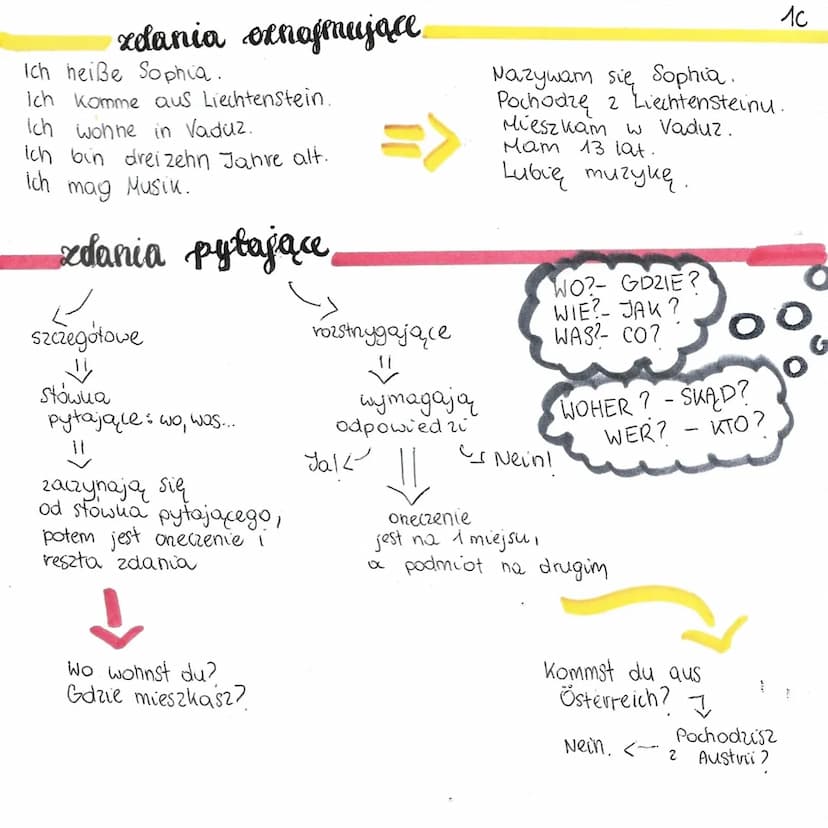 1c
zdania oznajmujące
Ich heiße Sophia.
Ich komme aus Liechtenstein.
Ich wohne in Vaduz.
Ich bin dreizehn Jahre alt.
Ich mag Musik.
Nazywam się Sophia.
Pochodzę z Liechtensteinu.
Mieszkam w Vaduz.
Mam 13 lat.
Lubię muzykę.
zdania pytające
szczegółowe
słówka
pytające: wo, was...
zaczynają się
od słówka pytającego,
potem jest oneczenie i
reszta zdania
Wo wohnst du?
Gdzie mieszkasz?
rozstrzygające
wymagają
odpowiedzi
Ja! Nein!
oneczenie
jest na 1 miejsu,
a podmiot na drugim
WO? - GDZIE?
WIE? - JAK?
WAS? - CO?
WOHER? - SKĄD?
WER? - KTO?
Kommst du aus
Österreich?
Pochodzisz
z Austrii?
Nein.